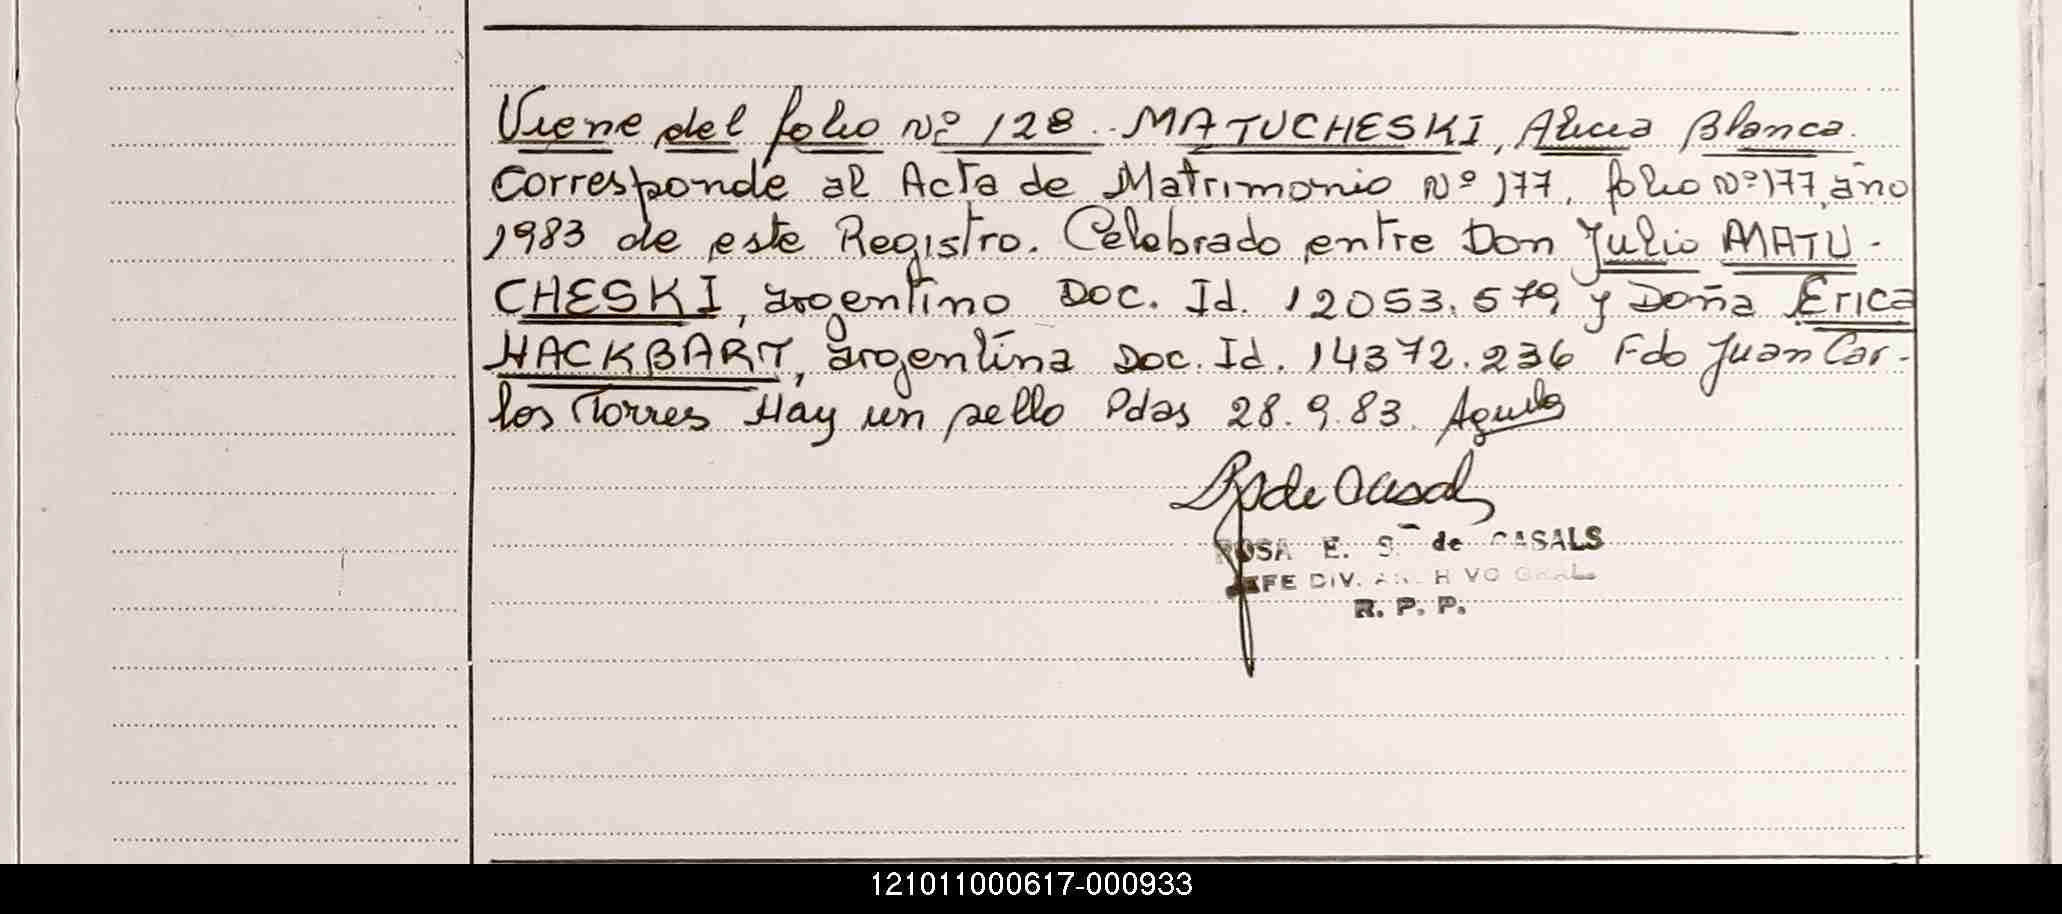 Viene del folio Nº 128.. MATUCHESKI, Alicia Blanca.
Corresponde al Acta de Matrimonio Nº 177, folio Nº 177, año
1983 de este Registro. Celebrado entre Don Julio MATU-
CHESKI, argentino Doc. Id. 12053.579 y Doña Erica
HACKBART, argentina Doc. Id. 14372.236 Fdo Juan Car-
los Torres Hay un sello Pdas 28.9.83.
de Casals
ROSA E. S. de CASALS
JEFE DIV. ARCHIVO GRAL
R. P. P.
121011000617-000933